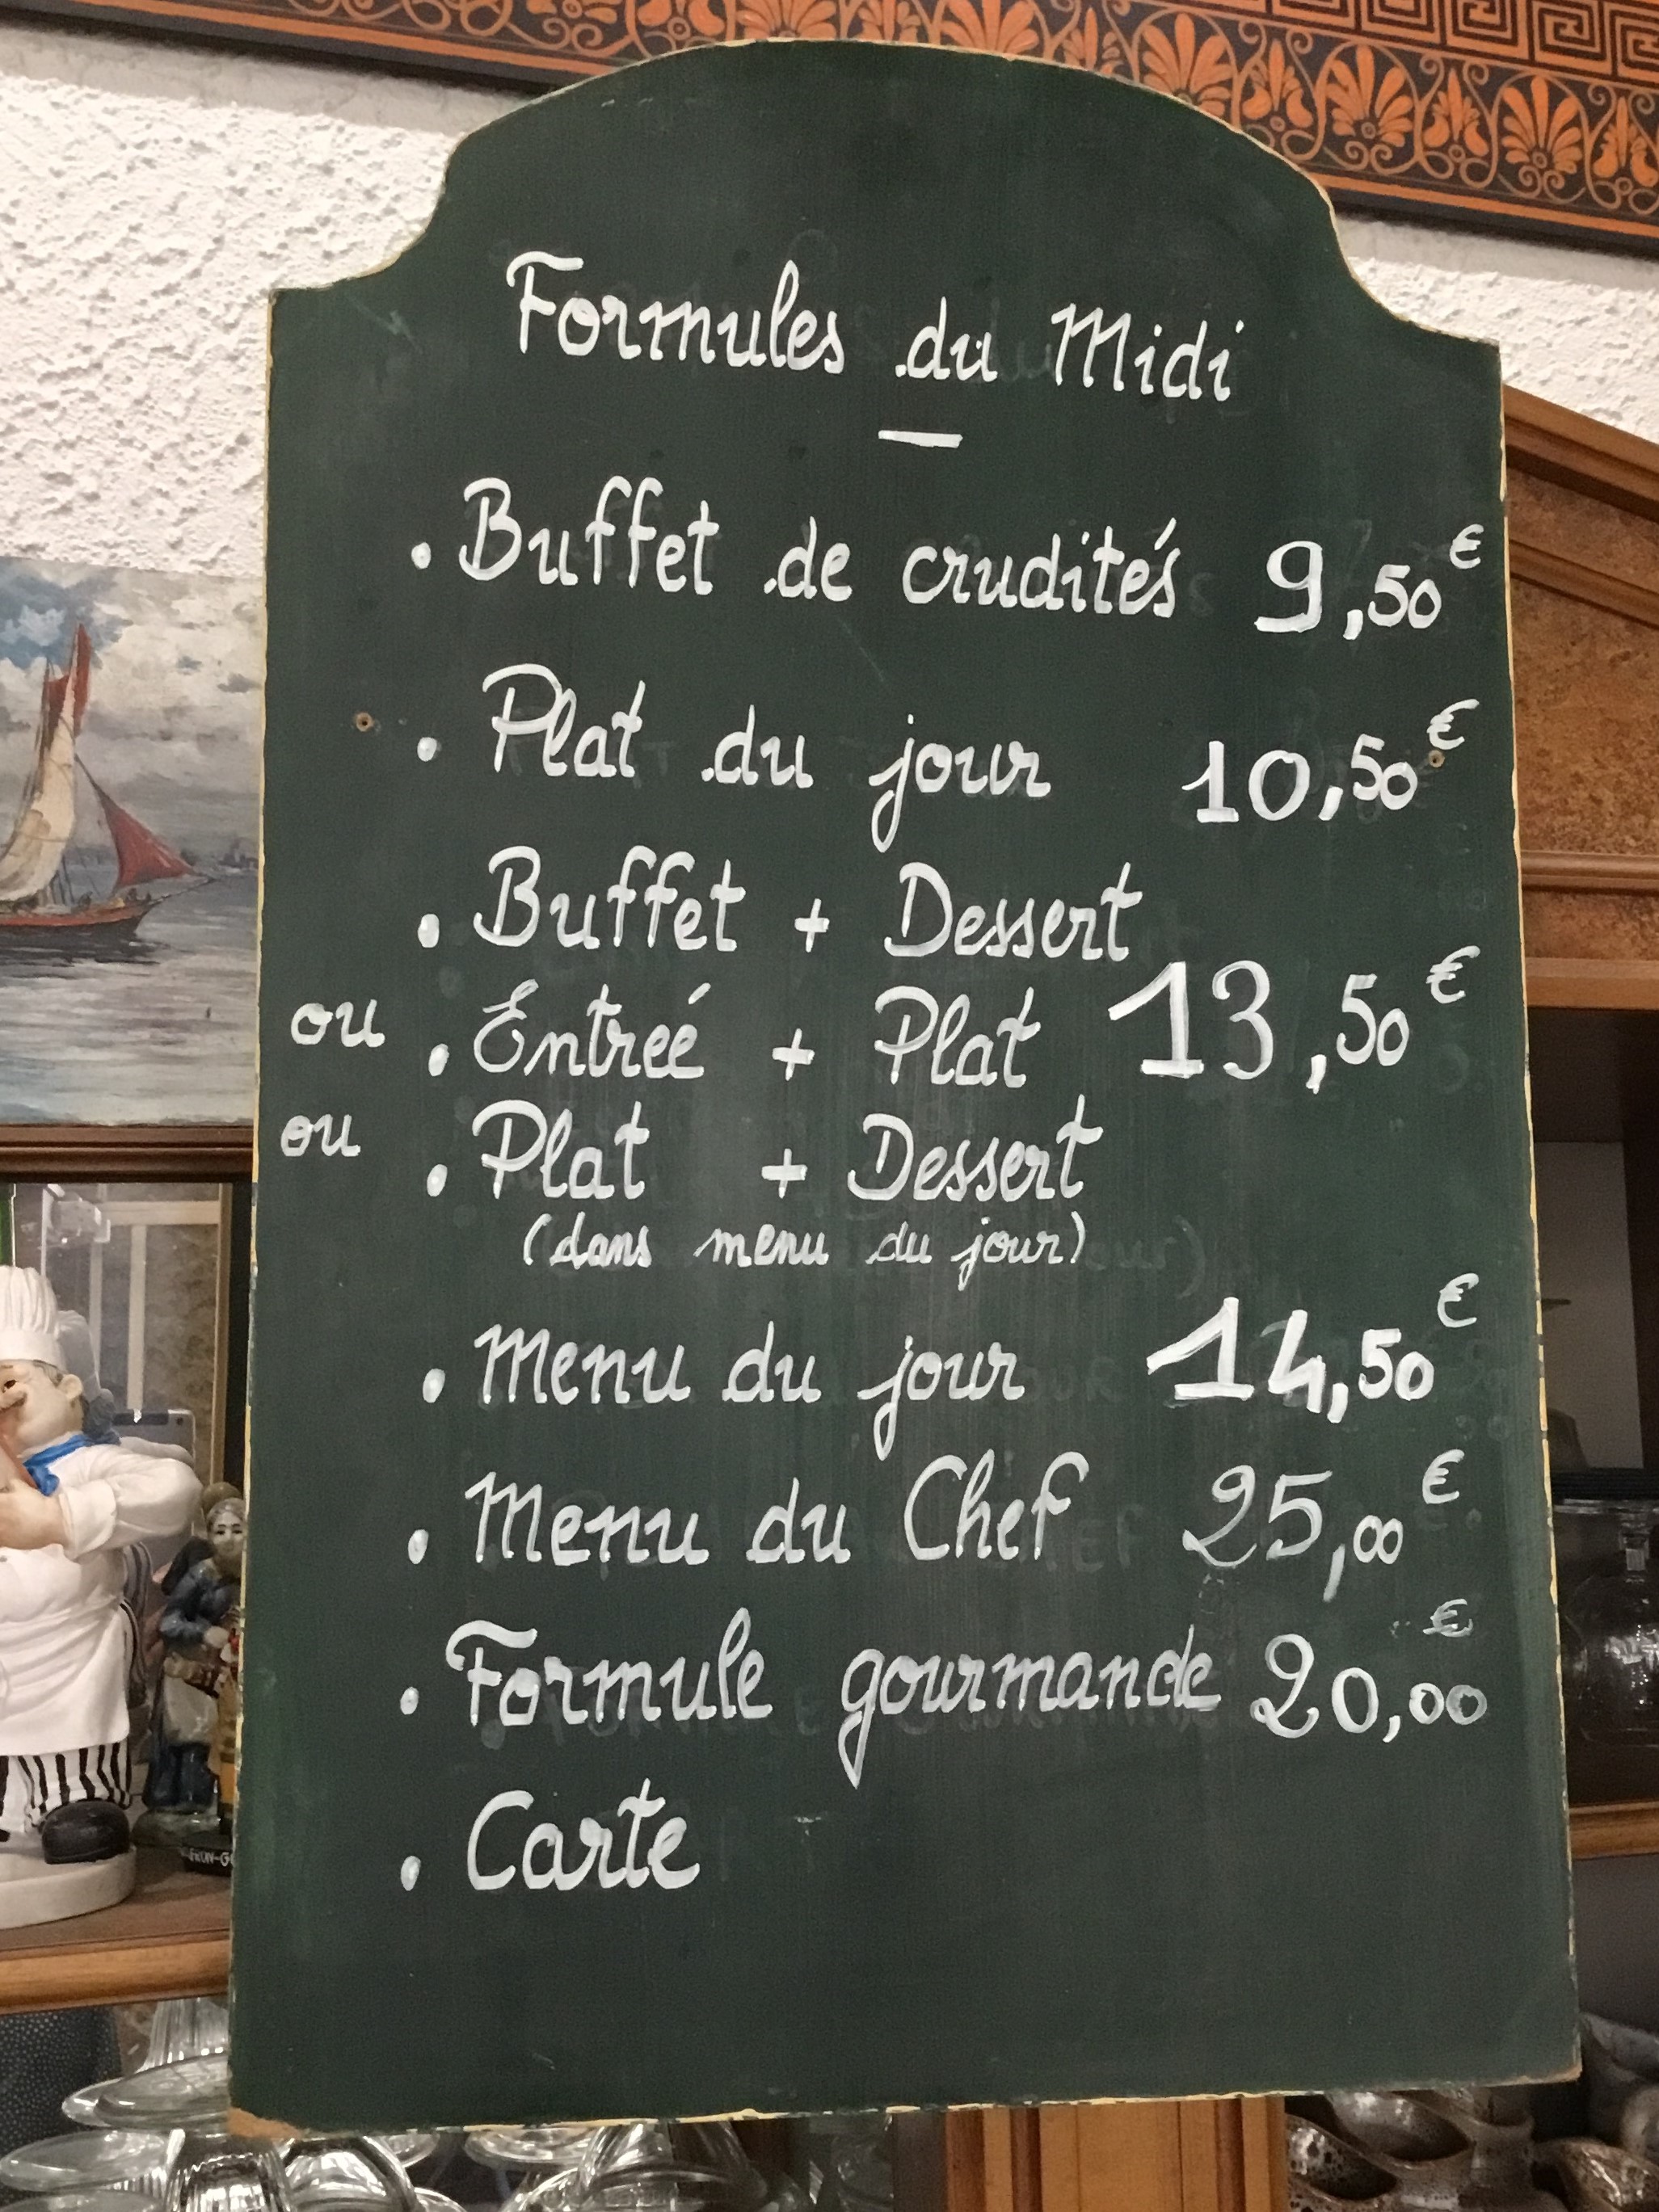 Formules du Midi
. Buffet de crudités 9,50€
. Plat du jour 10,50€
. Buffet + Dessert
ou . Entreé + Plat 13,50€
ou . Plat + Dessert
(dans menu du jour)
. Menu du jour 14,50€
. Menu du Chef 25,00€
. Formule gourmande 20,00€
. Carte